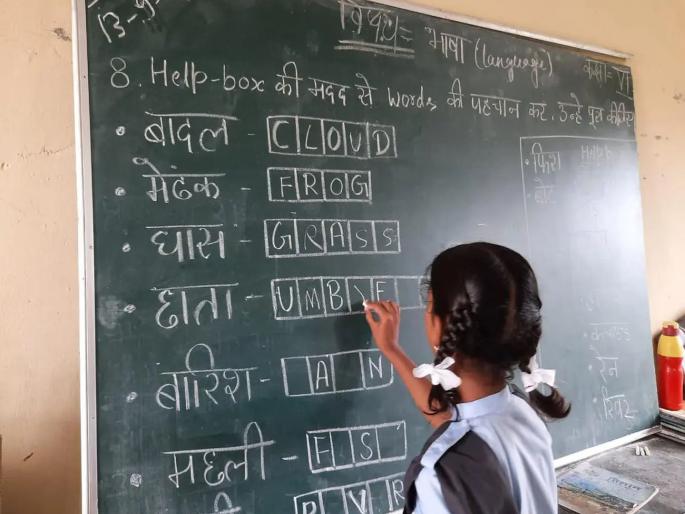 विषय = भाषा (language)
कक्षा = VI
8. Help-box की मदद से words की पहचान कर, उन्हें पूरा कीजिए
• बादल - CLOUD
• मेढक - FROG
• घास - GRASS
• छाता - UMB E
• बारिश - AN
• मछली - F S
R V R
Help b
• फ्रिश
रेन